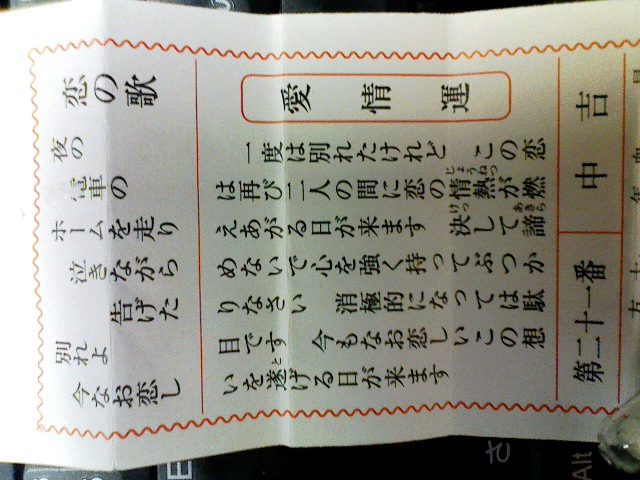 第二十一番
中吉
愛情運
一度は別れたけれど この恋
は再び二人の間に恋の情熱が燃
えあがる日が来ます 決して諦
めないで心を強く持ってぶつか
りなさい 消極的になっては駄
目です 今もなお恋しいこの想
いを遂げる日が来ます
恋の歌
夜の
電車の
ホームを走り
泣きながら
告げた
別れよ
今なお恋し
E
さ
Alt